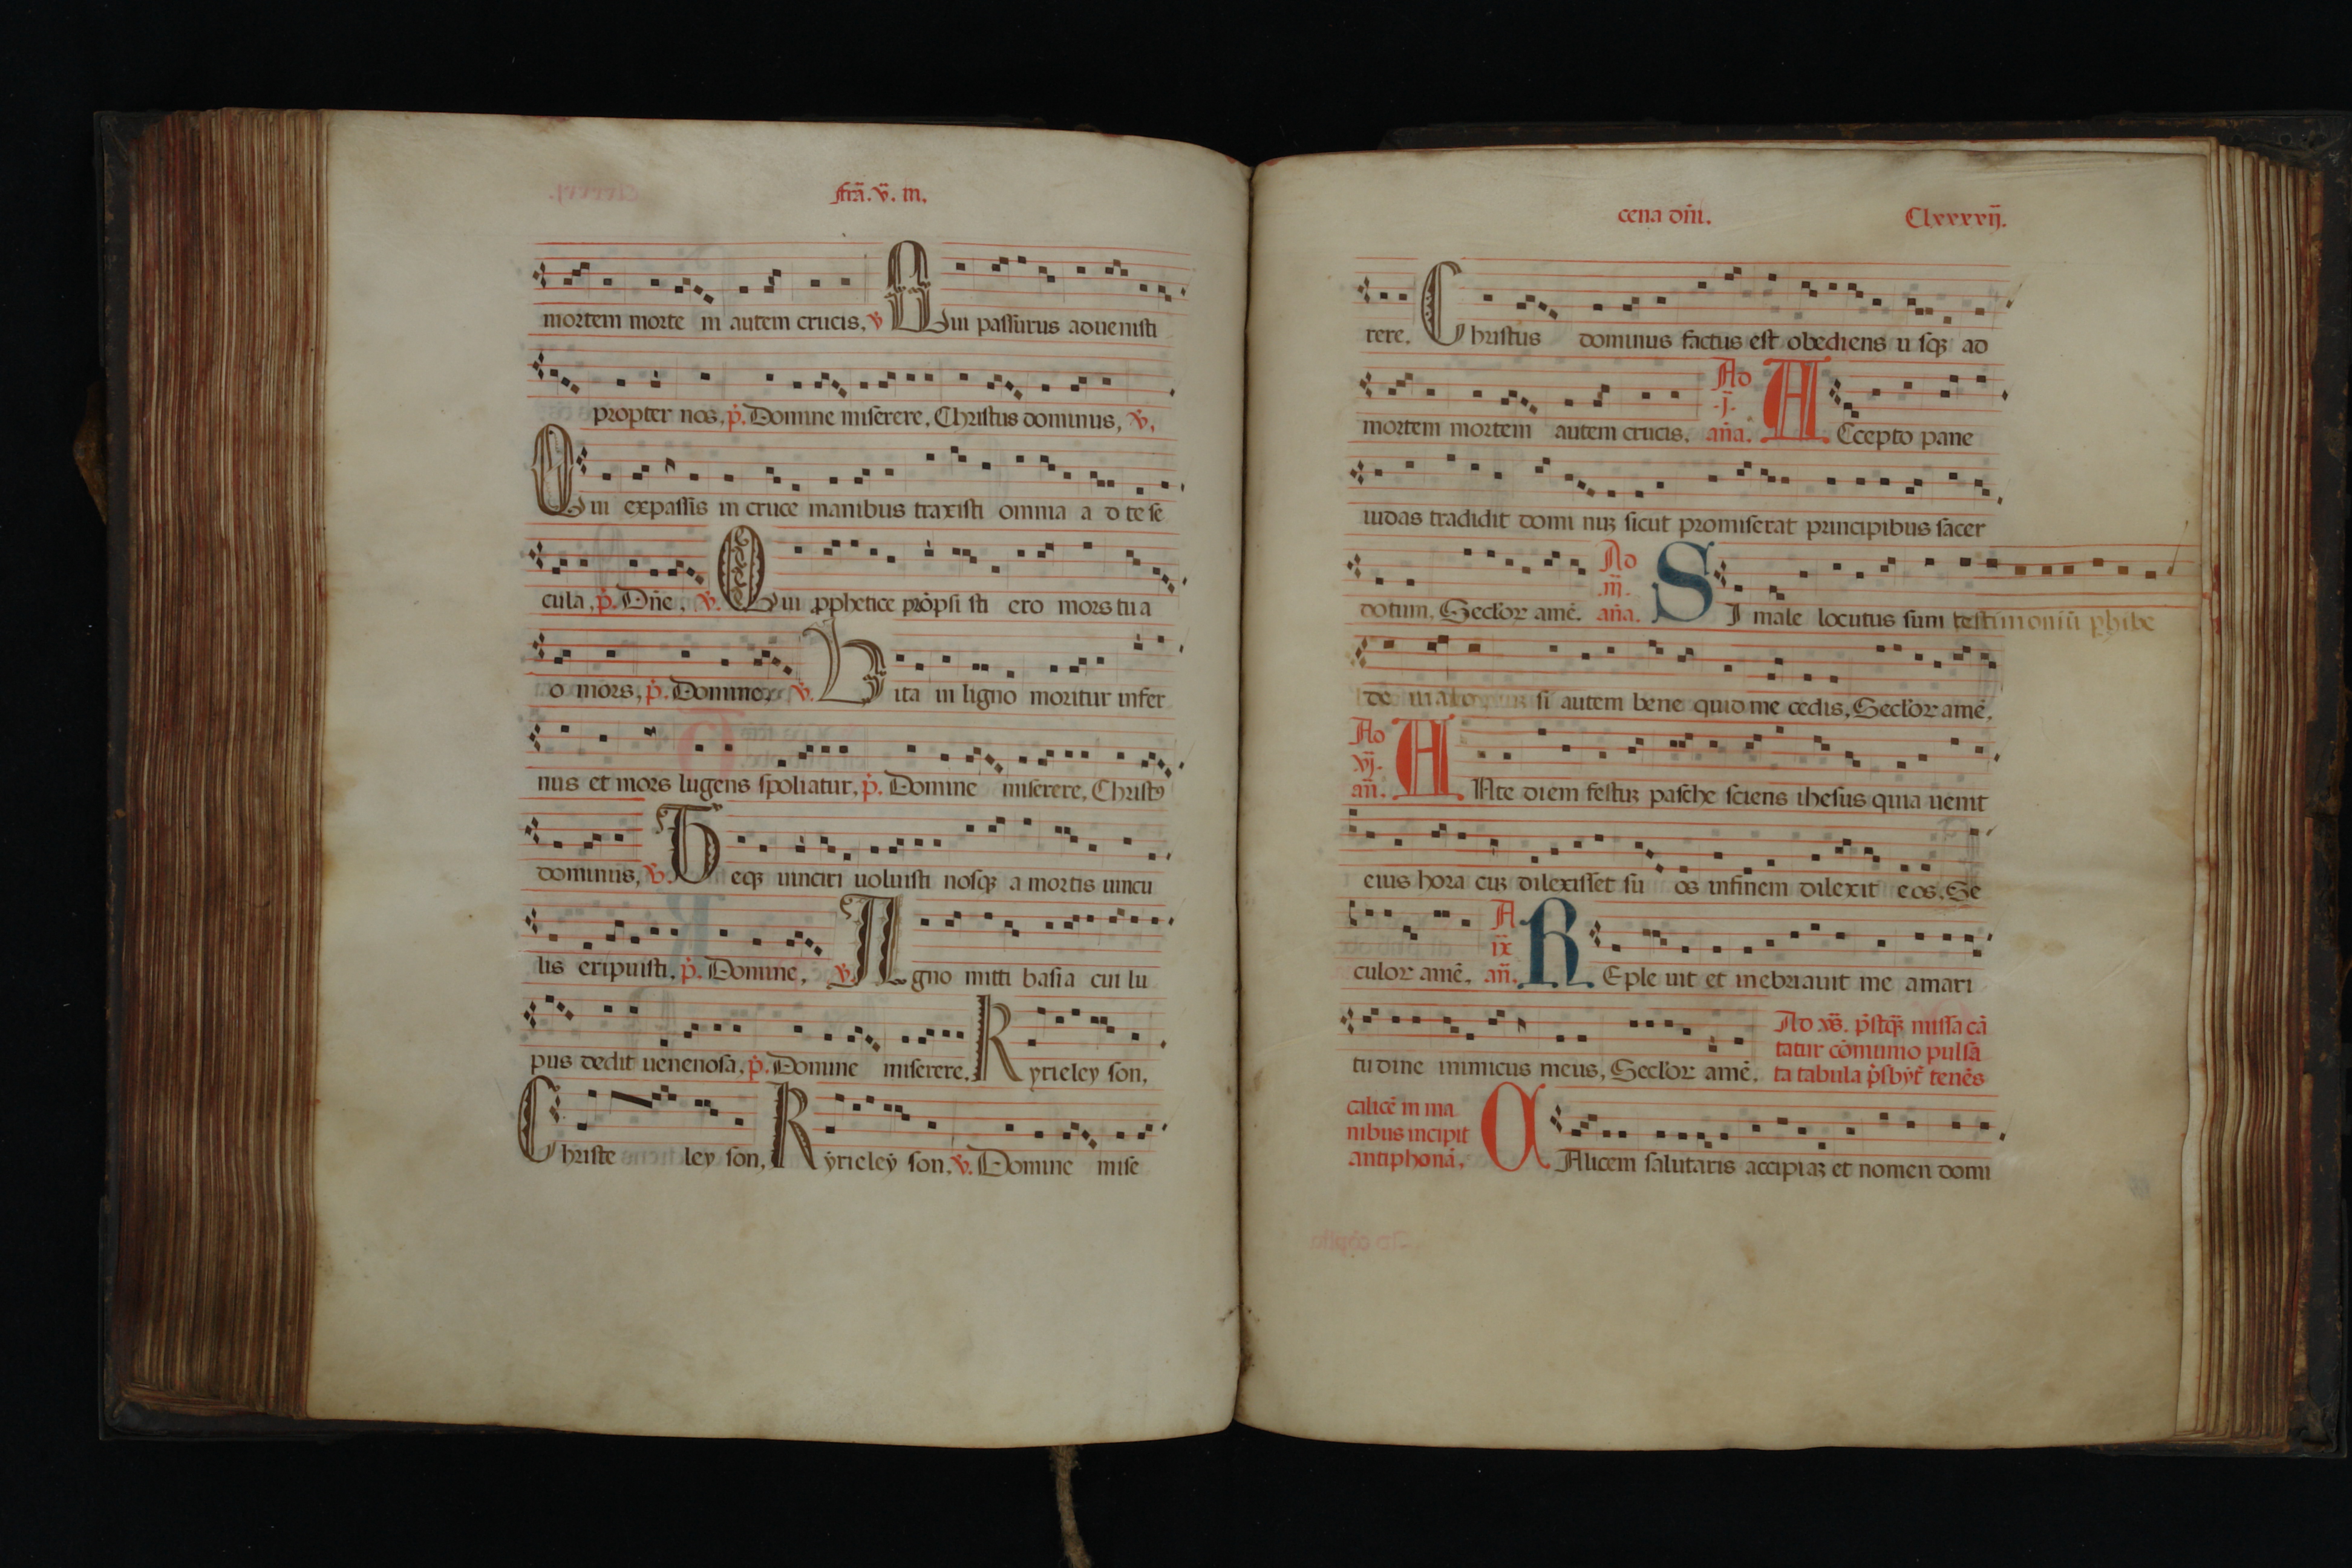 frã. v̄. in.
mortem morte m autem crucis, v̄ Qui passurus aduenisti
propter nos, p̄. Domine miserere, Christus dominus, v̄.
Qui expassis in cruce manibus traxisti omnia a d te se
cula, p̄. Dñe, v̄. Qui pphetice prōpsi sti ero mors tu a
o mors, p̄. Domine, v̄. Vita in ligno moritur infer
nus et mors lugens spoliatur, p̄. Domine miserere, Christꝰ
dominus, v̄. Teqꝫ uinciri uoluisti nosqꝫ a mortis uincu
lis eripuisti, p̄. Domine, v̄. Agno mitti basia cui lu
pus dedit uenenosa, p̄. Domine miserere, Kyrieley son,
Christe ley son, Kyrieley son, v̄. Domine mise
cena dñi. Clxxxxvij.
rere. Christus dominus factus est obediens u sqꝫ ad
mortem mortem autem crucis. Ad .j. aña. ACcepto pane
iudas tradidit domi nuꝫ sicut promiserat principibus sacer
dotum, Seclor amē. Ad .iij. aña. SI male locutus sum testimoniū phibe
de malo si autem bene quid me cedis, Seclor amē.
Ad vj. añ. ANte diem festuꝫ pasche sciens ihesus quia uenit
eius hora eiꝫ dilexisset su os infinem dilexit eos. Se
culor amē. A ix añ. REple uit et inebriauit me amari
tudine inimicus meus, Seclor amē. Ad xs̄. pstqꝫ missa cā
tatur cōmunio pulsā
ta tabula psbyt tenēs
calicē in ma
nibus incipit
antiphonā. CAlicem salutaris accipiaꝫ et nomen domi